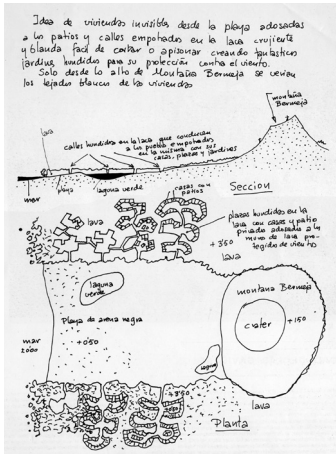 Idea de viviendas invisibles desde la playa adosadas
a los patios y calles empotrados en la lava crujiente
y blanda facil de cortar o apisonar creando fantasticos
jardines hundidos para su protección contra el viento.
Solo desde lo alto de Montaña Bermeja se verian
los tejados blancos de las viviendas
montaña
Bermeja
lava
calles hundidas en la lava que conducen
a los pueblos empotrados
en la misma con sus
casas, plazas y jardines
mar
playa
laguna verde
Seccion
casas con
patios
lava
plazas hundidas en la
lava con casas y patio
privado adosadas a los
muros de lava pro-
tegidos de viento
+3'50
lava
laguna
verde
montaña Bermeja
Playa de arena negra
+0'50
crater
+150
mar
±0'00
laguna
+3'50
lava
Planta